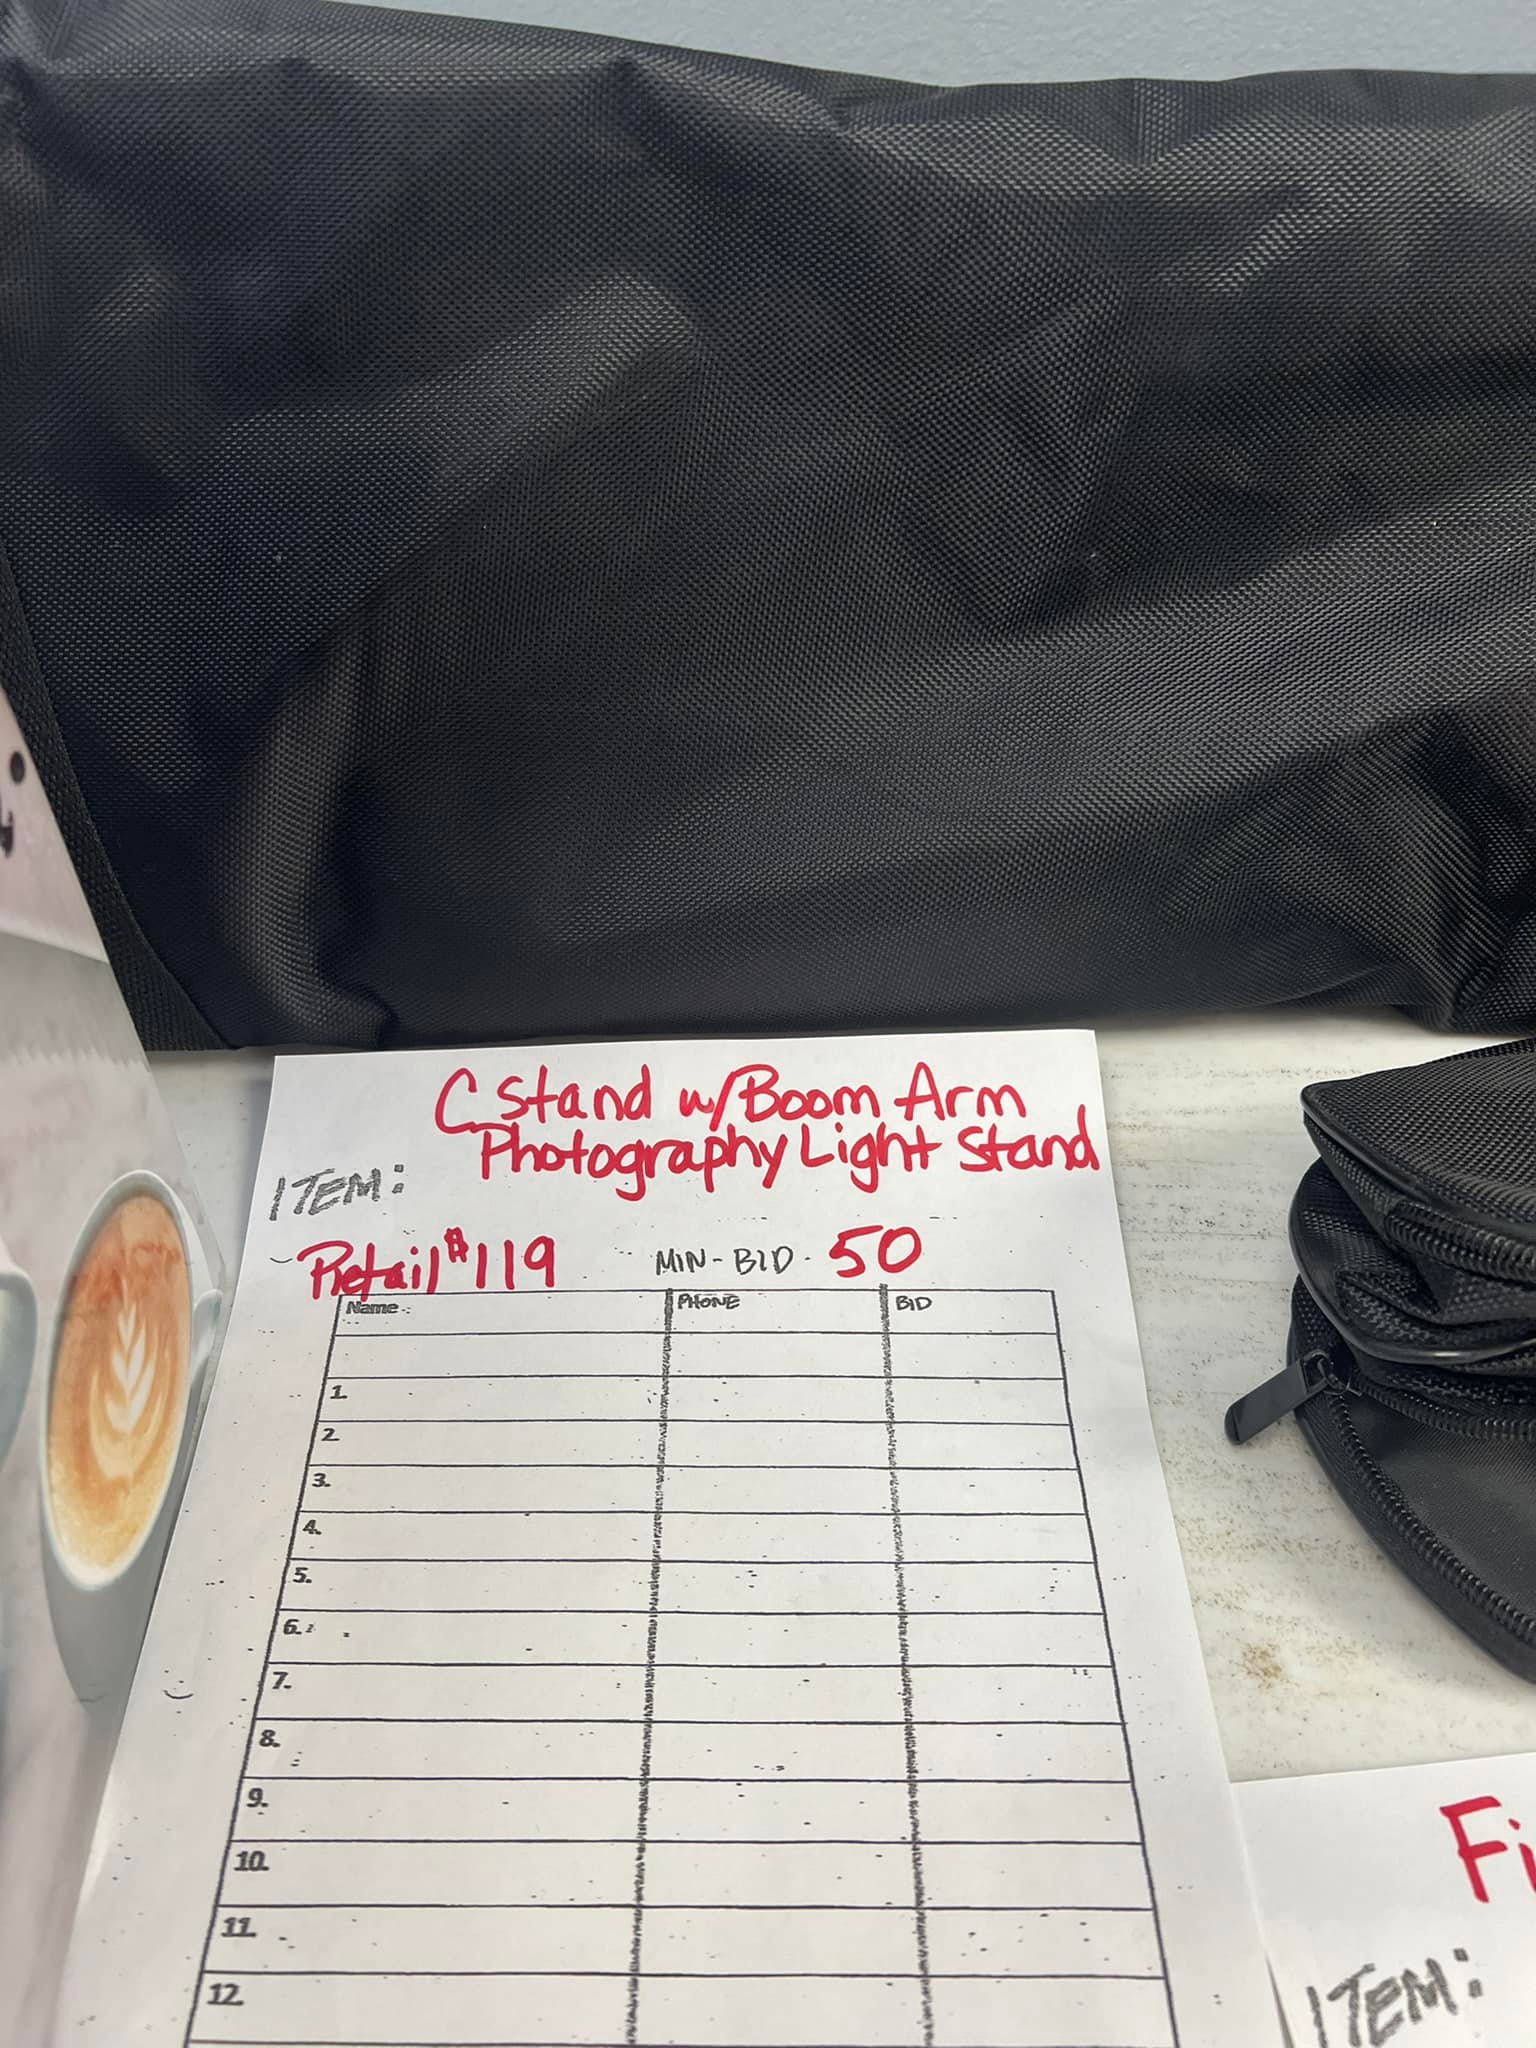 C Stand w/Boom Arm
Photography Light Stand
ITEM:
Retail $119 MIN-BID- 50
Name: PHONE BID
1.
2
3.
4.
5.
6.
7.
8.
9.
10.
11.
12.
Fi
ITEM: